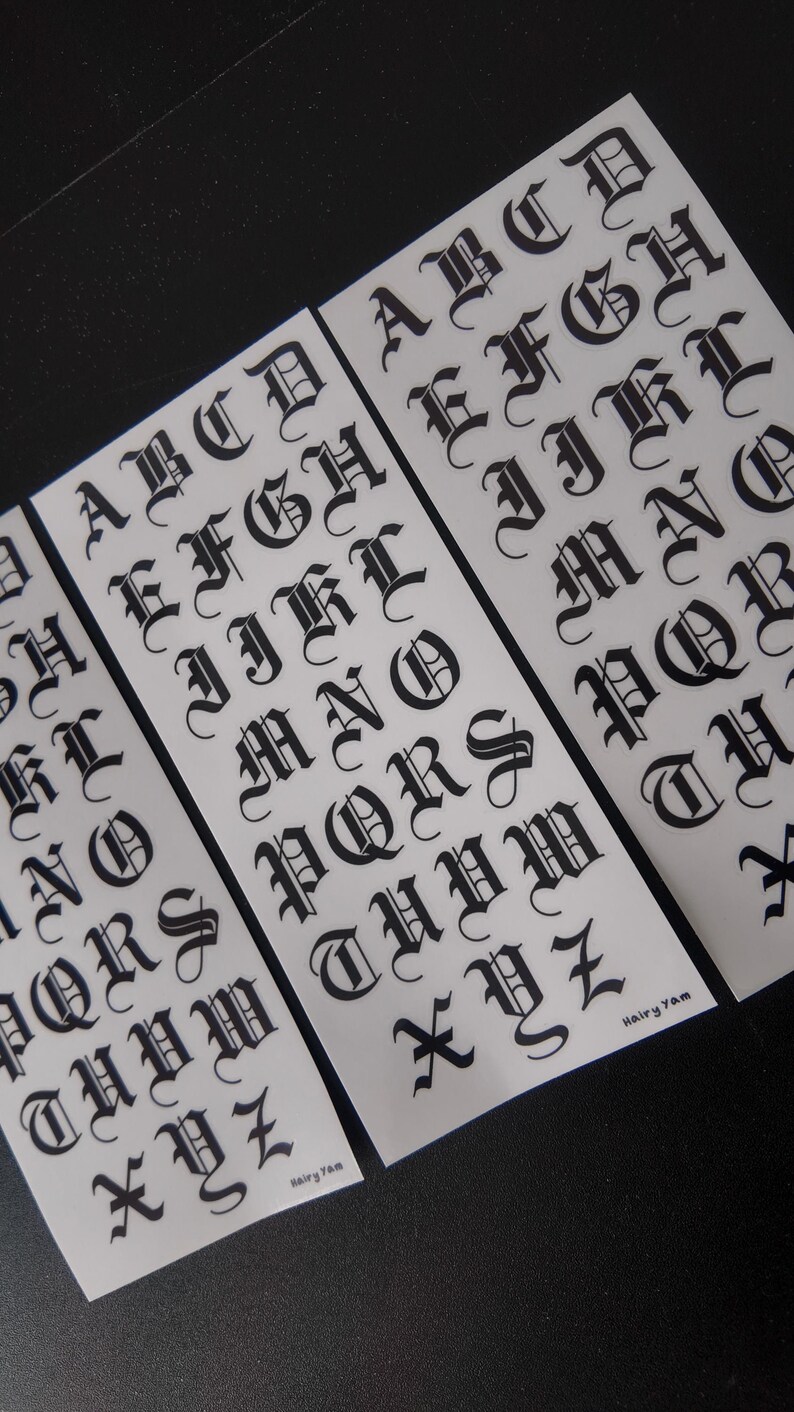 D
H
K L
N O
P Q R S
T U V W
X Y Z
Hairy Yam
A B C D
E F G H
I J K L
M N O
P Q R S
T U V W
X Y Z
Hairy Yam
A B C D
E F G H
I J K L
M N O
P Q R
T U
X